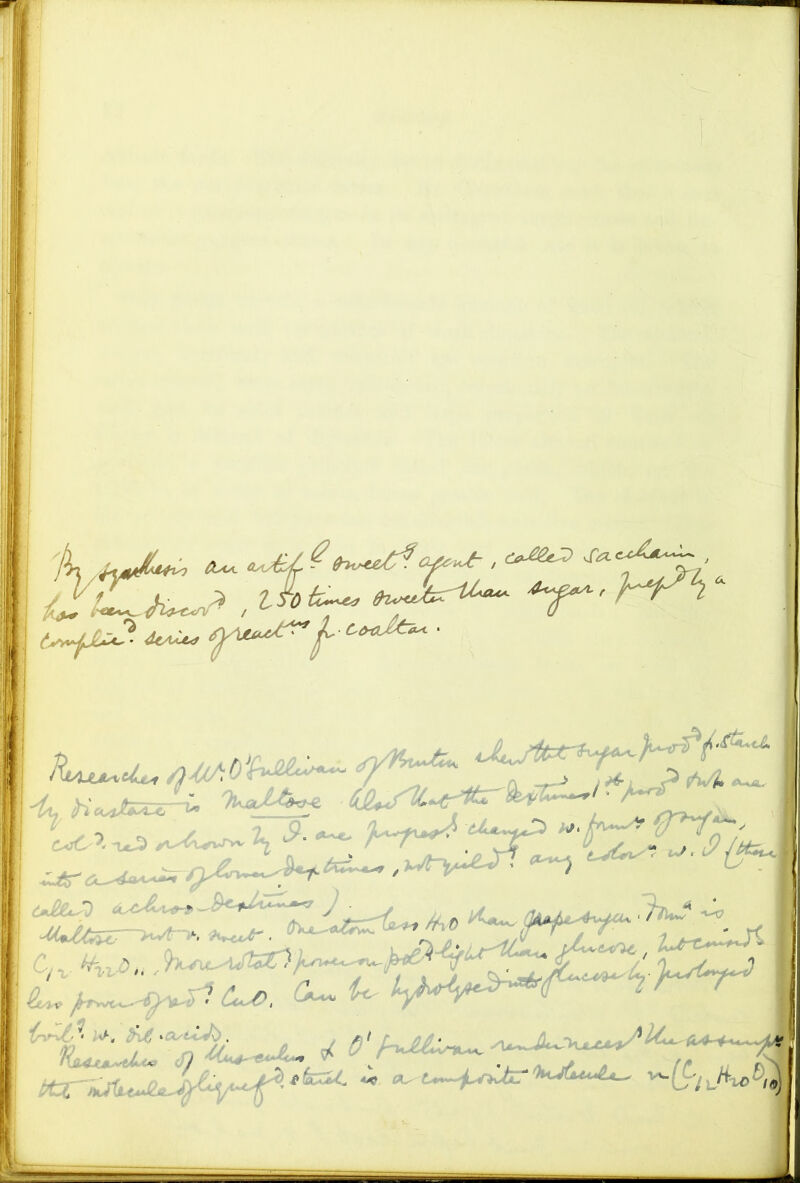 By synthesis an artif.l sweet.g agent, called saccharin,
has been discov.d, 250 times sweeter than sugar, prep.d by a
complic.d series of react.ns fr. coaltar.
Researches of Mr. O'Sullivan of Burton shew tht sugar prod.d fr. starch
by diastase is Maltose Also that the Dextrines 1.st prod.d & wh are
col.d red or brown by I. are progres.y changed w. form.n of sugar,
into a series of lower dextrines, not yield.g any color.n w. I (these
called achroo-dextrines).
Maltose not v. sweet. One atom less H2O than grape sugar. Form.a is
C12 H22O11. More rotat.g power on pol.d light than glucose, but
less power of red.g CuO. Can be hydrolysed into glucose by prolonged
boil.g w. dil. acids.
Researches of Musculus & O'Sullivan render necess.y the assump.n
tht molecule of liquef.d starch is a composite molecule n(C12H20O10)